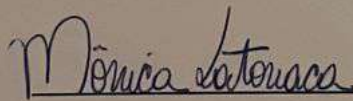 Mônica Latouaca